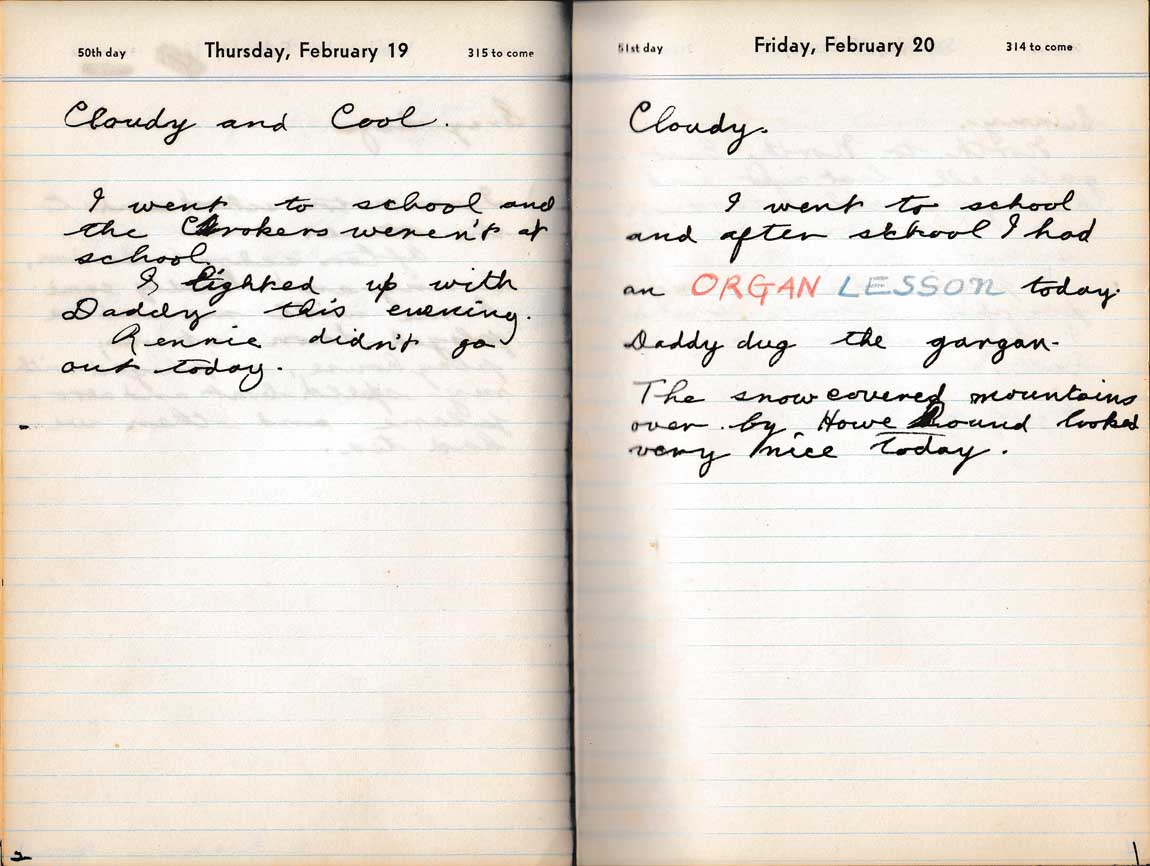 50th day Thursday, February 19 315 to come
Cloudy and Cool.
I went to school and
the Cbrokers weren't at
school.
I tighked up with
Daddy this evening.
Rennie didn't go
out today.
2
51st day Friday, February 20 314 to come
Cloudy.
I went to school
and after school I had
an ORGAN LESSON today.
Daddy dug the gargan.
The snow covered mountains
over by Howe Sound looked
very nice today.
1